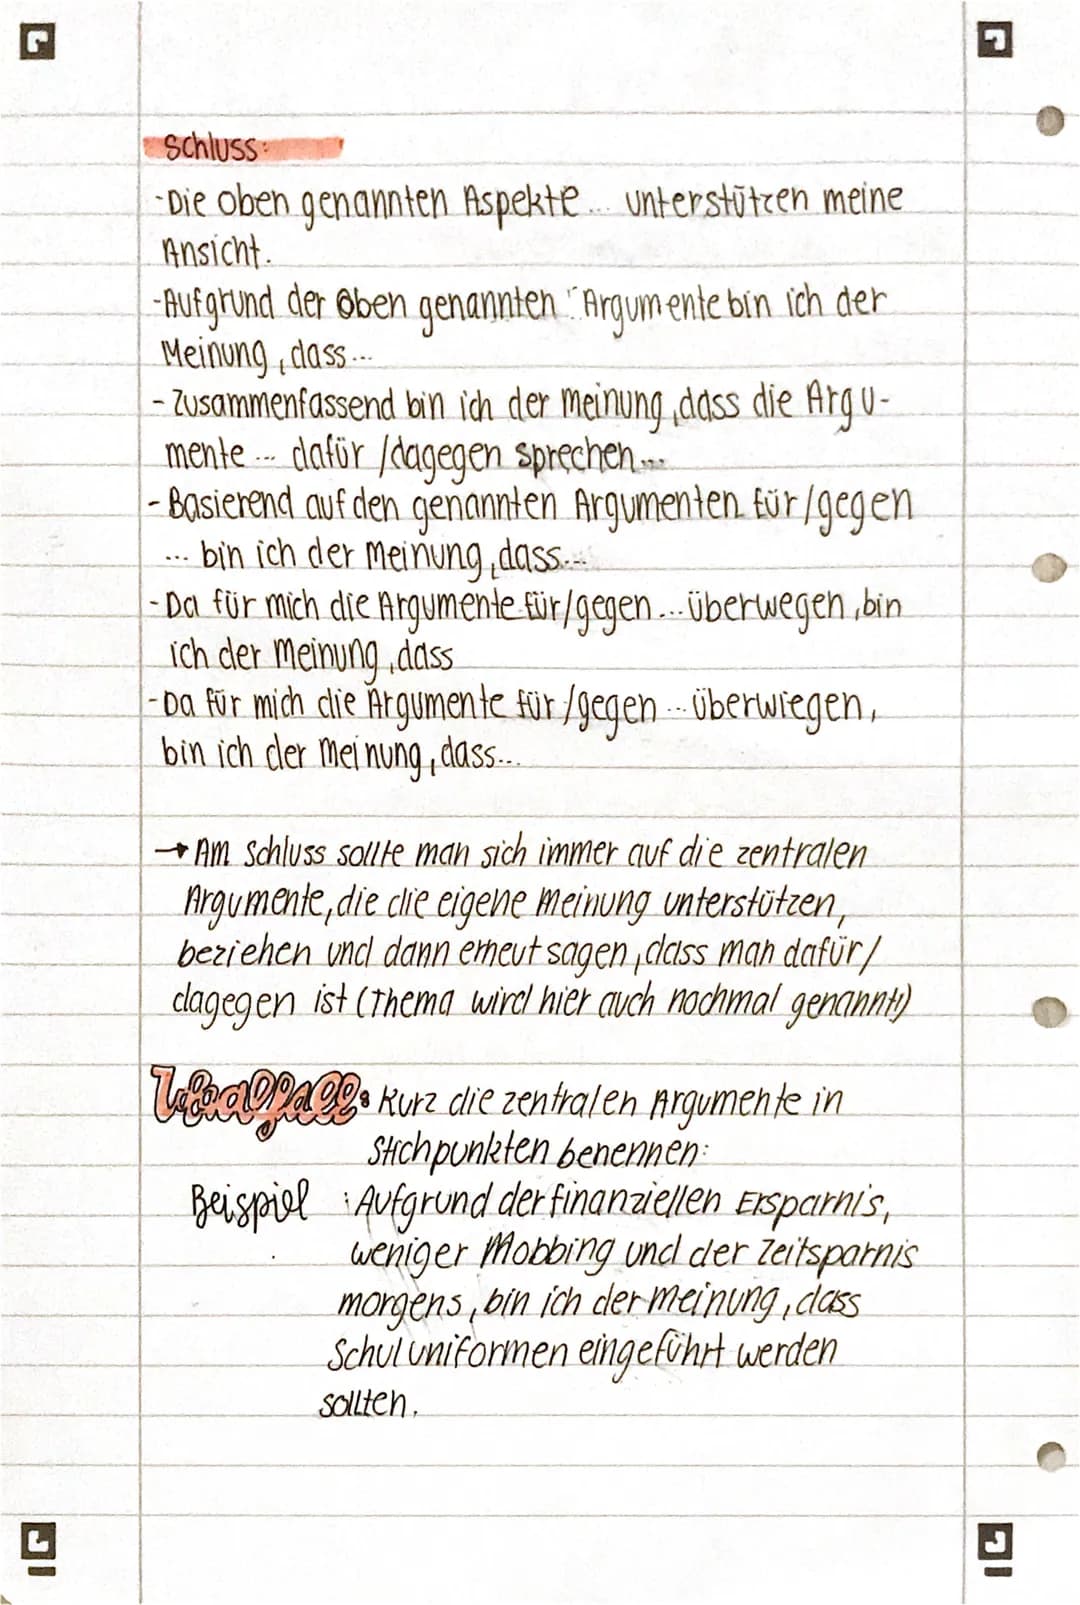 Schluss:
-Die oben genannten Aspekte... unterstützen meine
Ansicht.
-Aufgrund der oben genannten Argumente bin ich der
Meinung, dass...
- Zusammenfassend bin ich der Meinung, dass die Argu-
mente ... dafür / dagegen sprechen...
- Basierend auf den genannten Argumenten für/gegen
... bin ich der Meinung, dass...
-Da für mich die Argumente für/gegen ... überwegen, bin
ich der Meinung, dass
-Da für mich die Argumente für/gegen ... überwiegen,
bin ich der Meinung, dass...
→ Am Schluss sollte man sich immer auf die zentralen
Argumente, die die eigene Meinung unterstützen,
beziehen und dann erneut sagen, dass man dafür/
dagegen ist (Thema wird hier auch nochmal genannt!)
Idealfall: Kurz die zentralen Argumente in
Stichpunkten benennen:
Beispiel : Aufgrund der finanziellen Ersparnis,
weniger Mobbing und der Zeitsparnis
morgens, bin ich der Meinung, dass
Schuluniformen eingeführt werden
sollten.